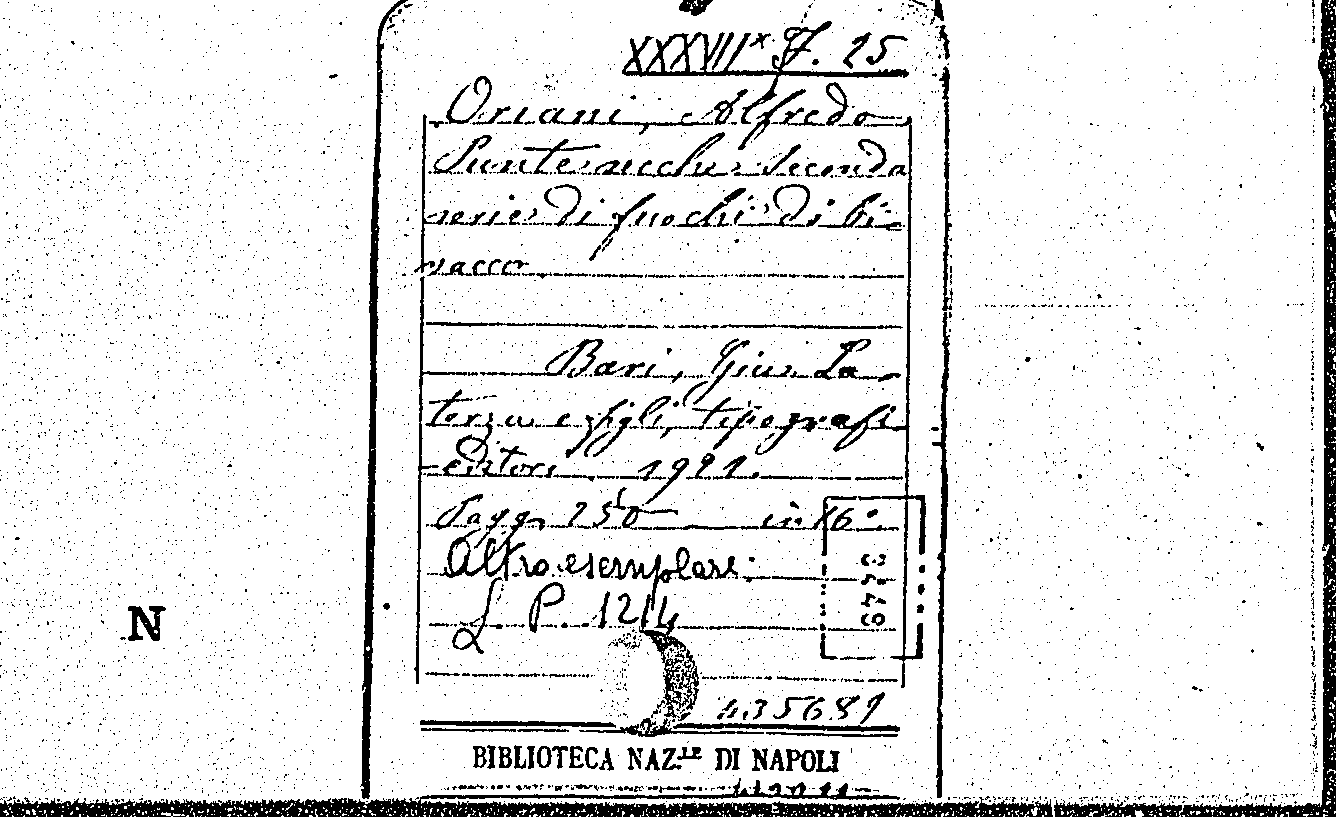 XXXVIIˣ F. 25
Oriani, Alfredo
Punte secche Seconda
serie di fuochi di bi-
vacco
Bari, Gius. La-
terza e figli, tipografi
-editori 1921.
Pagg. 250 in 16°.
Altro esemplare:
L. P. 1214
N
435689
BIBLIOTECA NAZ.LE DI NAPOLI